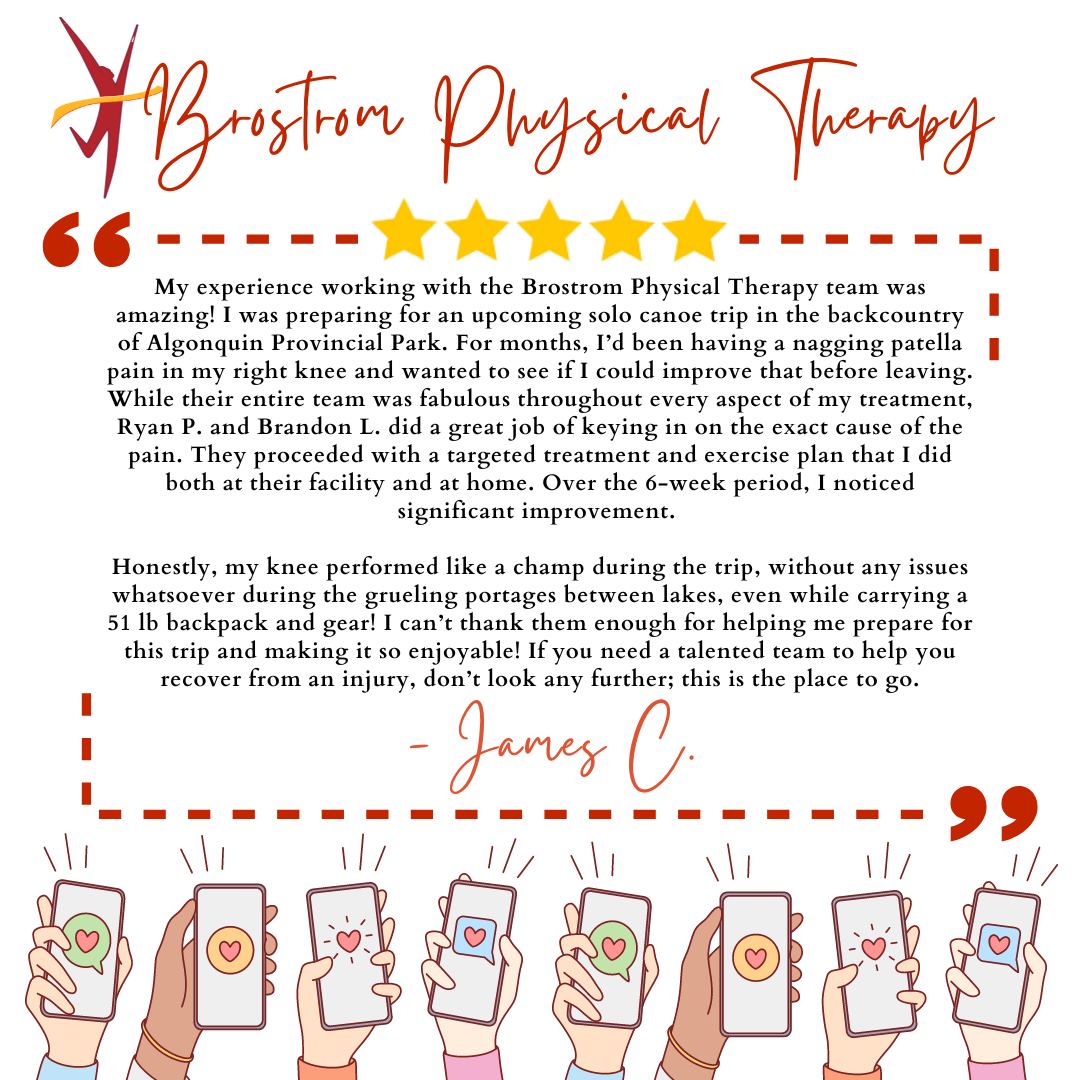 Brostrom Physical Therapy
“
My experience working with the Brostrom Physical Therapy team was
amazing! I was preparing for an upcoming solo canoe trip in the backcountry
of Algonquin Provincial Park. For months, I’d been having a nagging patella
pain in my right knee and wanted to see if I could improve that before leaving.
While their entire team was fabulous throughout every aspect of my treatment,
Ryan P. and Brandon L. did a great job of keying in on the exact cause of the
pain. They proceeded with a targeted treatment and exercise plan that I did
both at their facility and at home. Over the 6-week period, I noticed
significant improvement.
Honestly, my knee performed like a champ during the trip, without any issues
whatsoever during the grueling portages between lakes, even while carrying a
51 lb backpack and gear! I can’t thank them enough for helping me prepare for
this trip and making it so enjoyable! If you need a talented team to help you
recover from an injury, don’t look any further; this is the place to go.
- James C.
”